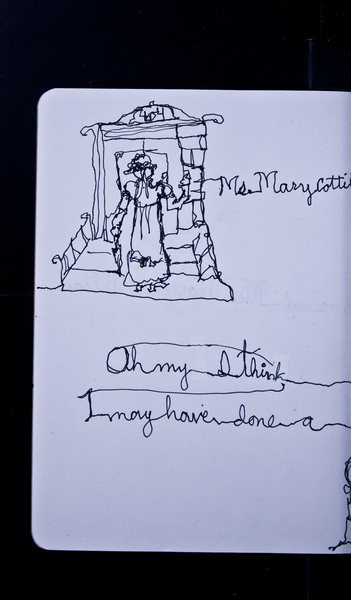 404
Ms. Mary Cotti
Oh my I think
I may have done a